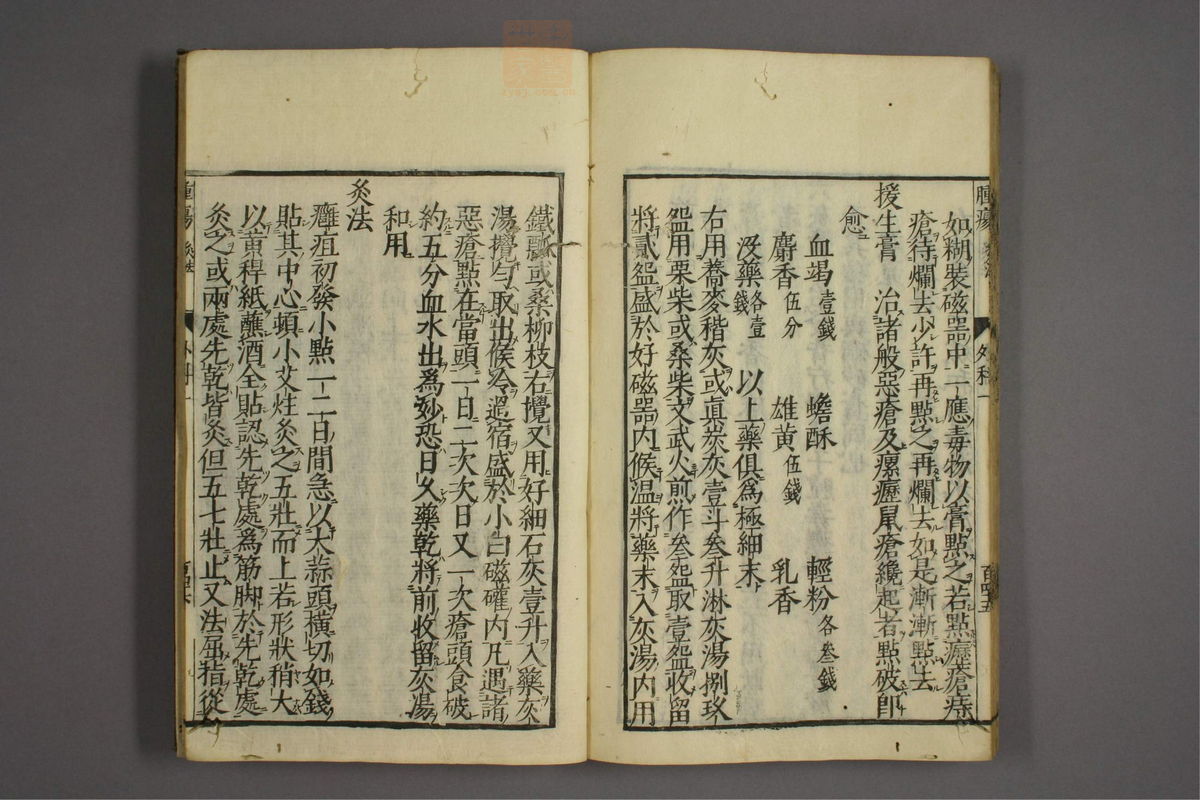 腫瘍
外科一
百四十五
如糊裝磁器中一應毒物以膏點之若點瘜瘡痔
瘡待爛去少許再點之再爛去如是漸漸點去
援生膏 治諸般惡瘡及瘰癧鼠瘡纔起者點破即
愈
血竭壹錢 蟾酥 輕粉各叁錢
麝香伍分 雄黃伍錢 乳香
沒藥各壹錢 以上藥俱為極細末
右用蕎麥稭灰或真炭灰壹斗叁升淋灰湯捌玖
盌用栗柴或桑柴文武火煎作叁盌取壹盌收留
將貳盌盛於好磁器內候温將藥末入灰湯內用
鐵瓢或桑柳枝右攪又用好細石灰壹升入藥灰
湯攪勻取出候冷過宿盛於小白磁確內凡遇諸
惡瘡點在當頭一日二次次日又一次瘡頭食破
約五分血水出為妙恐日久藥乾將前收留灰湯
和用
灸法
癰疽初發小點一二日間急以大蒜頭橫切如錢
貼其中心頓小艾炷灸之五壯而上若形狀稍大
以黄稈紙蘸酒全貼認先乾處為筋脚於先乾處
灸之或兩處先乾皆灸但五七壯止又法屈指從
腫瘍 灸法
百四十六